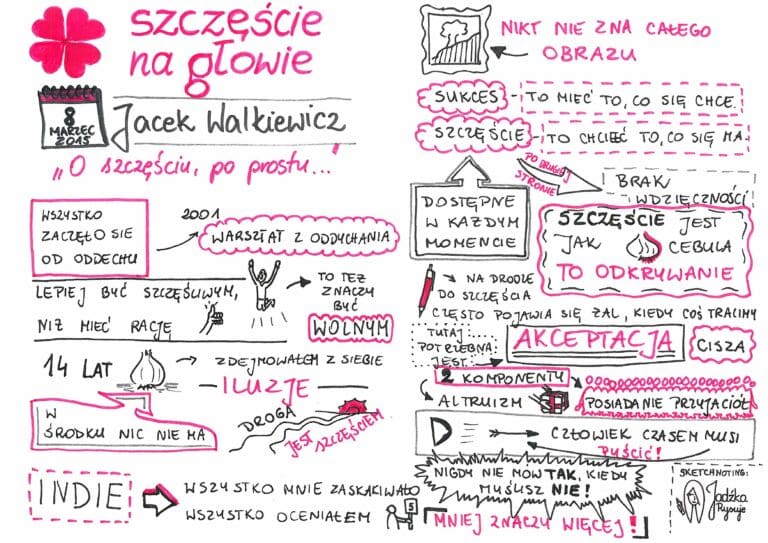 szczęście
na głowie
8
MARZEC
2015
Jacek Walkiewicz
„O szczęściu, po prostu..."
WSZYSTKO
ZACZĘŁO SIĘ
OD ODDECHU
2001
WARSZTAT Z ODDYCHANIA
LEPIEJ BYĆ SZCZĘŚLIWYM,
NIŻ MIEĆ RACJĘ
TO TEŻ
ZNACZY
BYĆ
WOLNYM
14 LAT
ZDEJMOWAŁEM Z SIEBIE
ILUZJE
W
ŚRODKU NIC NIE MA
DROGA
JEST SZCZĘŚCIEM
INDIE
WSZYSTKO MNIE ZASKAKIWAŁO
WSZYSTKO OCENIAŁEM
5
NIKT NIE ZNA CAŁEGO
OBRAZU
SUKCES - TO MIEĆ TO, CO SIĘ CHCE.
SZCZĘŚCIE - TO CHCIEĆ TO, CO SIĘ MA.
PO DRUGIEJ
STRONIE
BRAK
WDZIĘCZNOŚCI
DOSTĘPNE
W KAŻDYM
MOMENCIE
SZCZĘŚCIE JEST
JAK CEBULA
TO ODKRYWANIE
NA DRODZE
DO SZCZĘŚCIA
CZĘSTO POJAWIA SIĘ ŻAL, KIEDY COŚ TRACIMY
TUTAJ
POTRZEBNA
JEST
AKCEPTACJA
CISZA
2 KOMPONENTY
ALTRUIZM
POSIADANIE PRZYJACIÓŁ
CZŁOWIEK CZASEM MUSI
PUŚCIĆ!
NIGDY NIE MÓW TAK, KIEDY
MUSISZ NIE!
MNIEJ ZNACZY WIĘCEJ!
SKETCHNOTING:
Jadźka
Rysuje